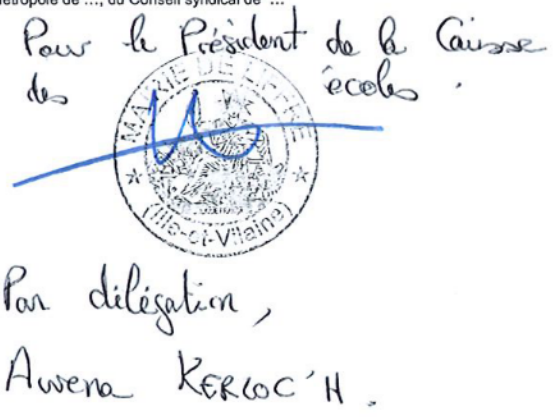 Métropole de ..., du Conseil syndical de ...
Pour le Président de la Caisse
des écoles.
MAIRIE DE LIFFRE
(Ille-et-Vilaine)
Par délégation,
Awena KERLOC'H.